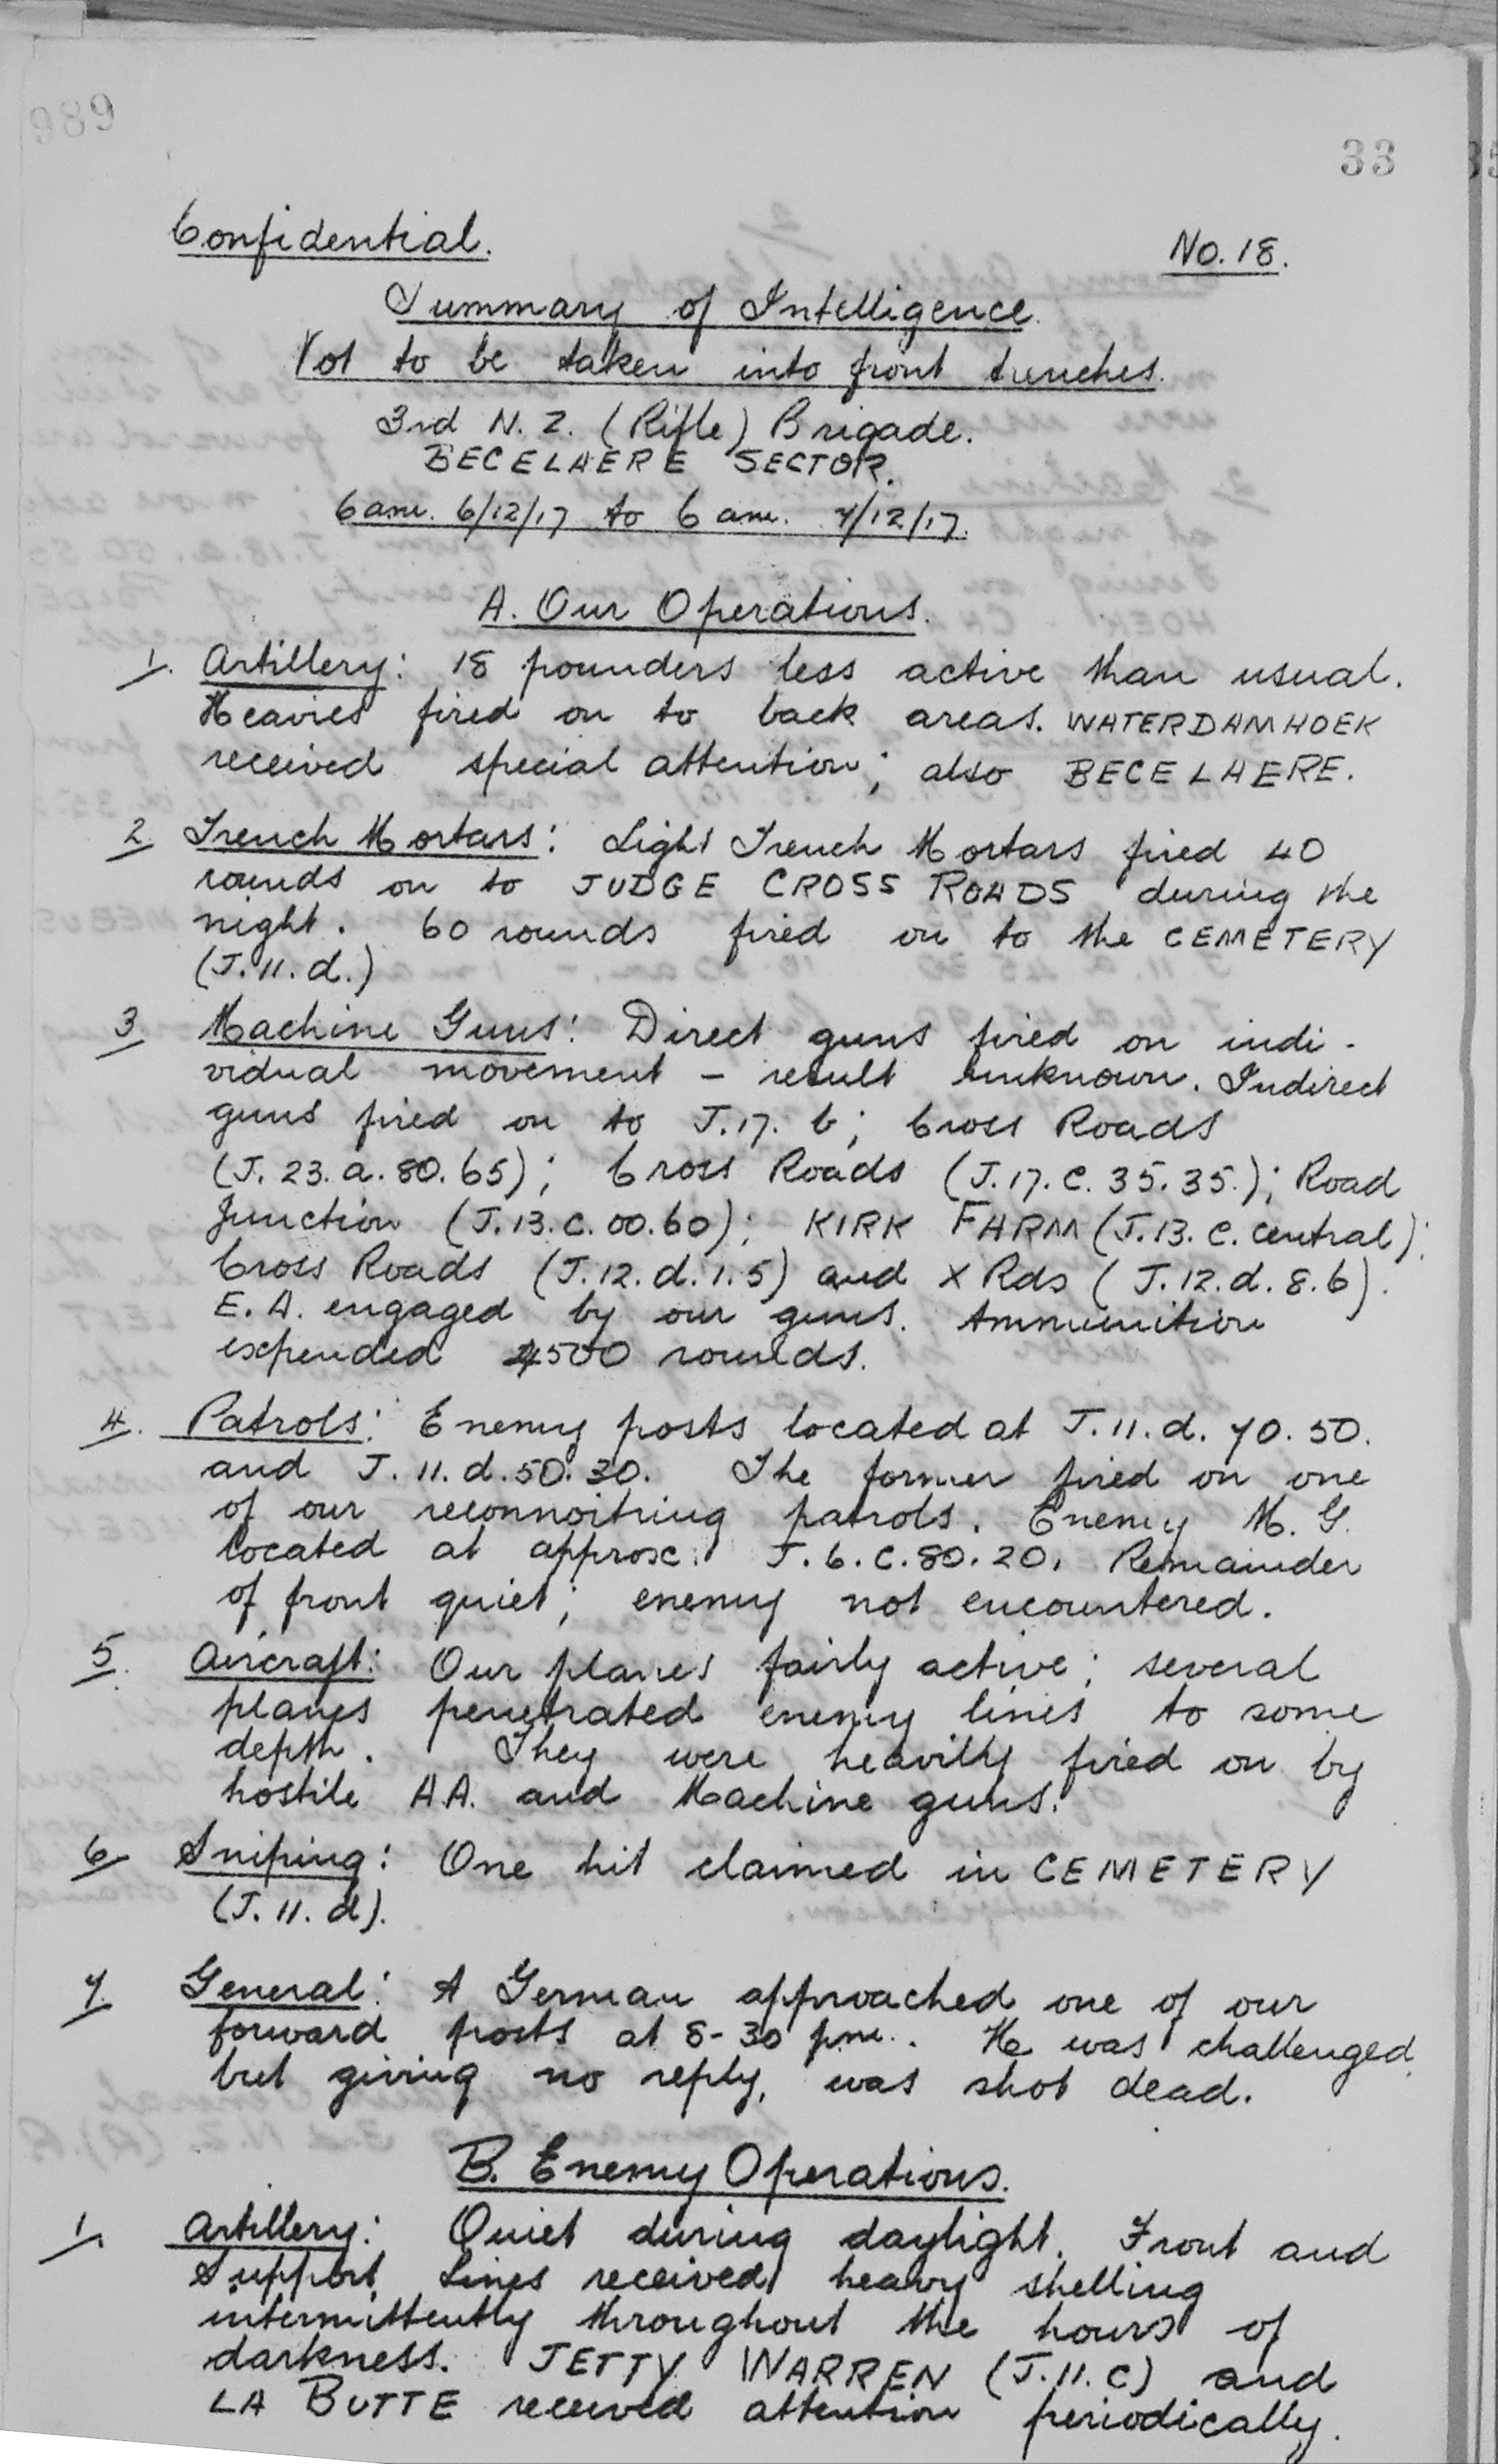 989
33
Confidential.
No. 18.
Summary of Intelligence.
Not to be taken into front trenches.
3rd N. Z. (Rifle) Brigade.
BECELAERE SECTOR.
6 am. 6/12/17 to 6 am. 7/12/17.
A. Our Operations.
1. Artillery: 18 pounders less active than usual.
Heavies fired on to back areas. WATERDAMHOEK
received special attention; also BECELAERE.
2. Trench Mortars: Light Trench Mortars fired 40
rounds on to JUDGE CROSS ROADS during the
night. 60 rounds fired on to the CEMETERY
(J.11.d.)
3. Machine Guns: Direct guns fired on indi-
vidual movement - result unknown. Indirect
guns fired on to J.17.b; Cross Roads
(J.23.a.80.65); Cross Roads (J.17.c.35.35.); Road
Junction (J.13.c.00.60); KIRK FARM (J.13.c.central);
Cross Roads (J.12.d.1.5) and X Rds (J.12.d.8.6).
E.A. engaged by our guns. Ammunition
expended 4500 rounds.
4. Patrols: Enemy posts located at J.11.d.70.50.
and J.11.d.50.30. The former fired on one
of our reconnoitring patrols. Enemy M.G.
located at approx: J.6.c.80.20. Remainder
of front quiet; enemy not encountered.
5. Aircraft: Our planes fairly active; several
planes penetrated enemy lines to some
depth. They were heavilly fired on by
hostile A.A. and Machine guns.
6. Sniping: One hit claimed in CEMETERY
(J.11.d).
7. General: A German approached one of our
forward posts at 8-30 pm.. He was challenged
but giving no reply, was shot dead.
B. Enemy Operations.
1. Artillery: Quiet during daylight. Front and
Support Lines received heavy shelling
intermittently throughout the hours of
darkness. JETTY WARREN (J.11.c) and
LA BUTTE received attention periodically.